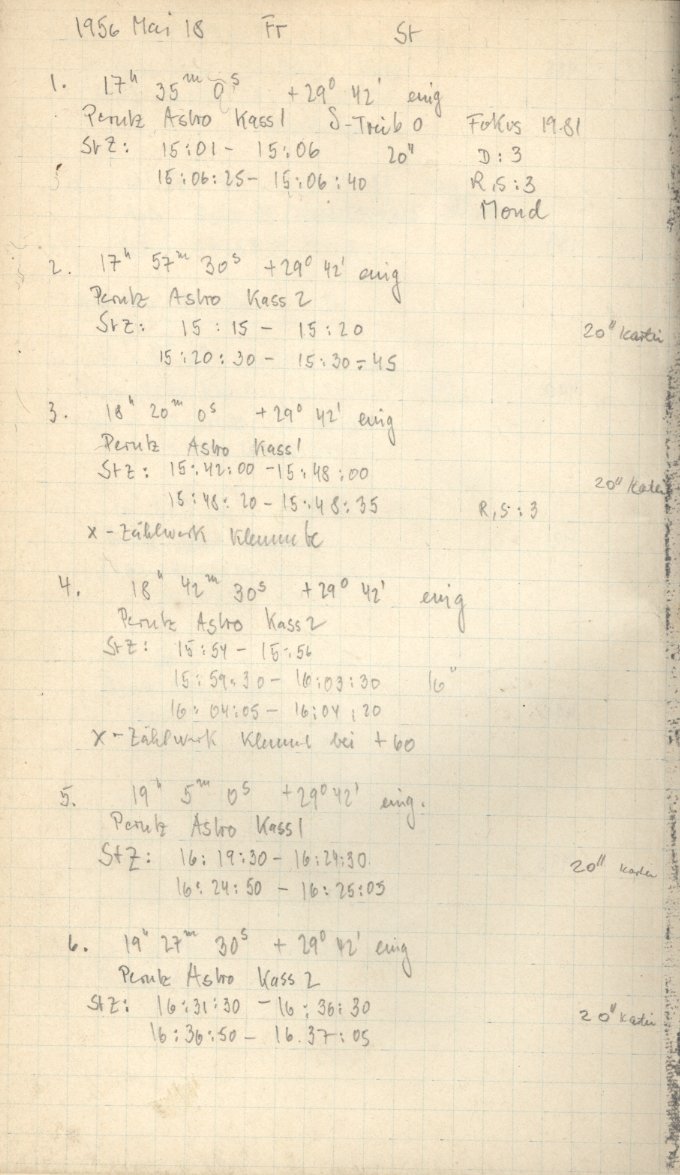 1956 Mai 18 Fr St
1. 17h 35m 0s +29° 42' einig
Perutz Astro Kass 1 δ-Trieb 0 Fokus 19.81
StZ: 15:01 - 15:06 20" D:3
15:06:25 - 15:06:40 R,S:3
Mond
2. 17h 57m 30s +29° 42' einig
Perutz Astro Kass 2
StZ: 15:15 - 15:20 20"
15:20:30 - 15:30=45
3. 18h 20m 0s +29° 42' einig
Perutz Astro Kass 1
StZ: 15:42:00 - 15:48:00 20"
15:48:20 - 15:48:35 R,S:3
x-Zählwerk
4. 18h 42m 30s +29° 42' einig
Perutz Astro Kass 2
StZ: 15:54 - 15:56
15:59:30 - 16:03:30 16"
16:04:05 - 16:04:20
x-Zählwerk bei +60
5. 19h 5m 0s +29° 42' einig.
Perutz Astro Kass 1
StZ: 16:19:30 - 16:24:30 20"
16:24:50 - 16:25:05
6. 19h 27m 30s +29° 42' einig
Perutz Astro Kass 2
StZ: 16:31:30 - 16:36:30 20"
16:36:50 - 16.37:05